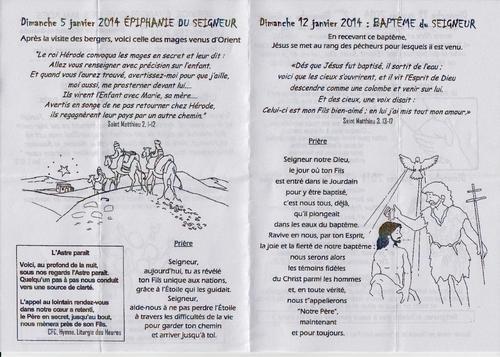 Dimanche 5 janvier 2014 ÉPIPHANIE DU SEIGNEUR
Après la visite des bergers, voici celle des mages venus d'Orient
"Le roi Hérode convoqua les mages en secret et leur dit :
Allez vous renseigner avec précision sur l'enfant.
Et quand vous l'aurez trouvé, avertissez-moi pour que j'aille,
moi aussi, me prosterner devant lui....
Ils virent l'Enfant avec Marie, sa mère....
Avertis en songe de ne pas retourner chez Hérode,
ils regagnèrent leur pays par un autre chemin."
Saint Matthieu 2, 1-12
L'Astre paraît
Voici, au profond de la nuit,
sous nos regards l'Astre paraît.
Quelqu'un pas à pas nous conduit
vers une source de clarté.
A l'appel au lointain rendez-vous
dans notre cœur a retenti,
le Père en secret, jusqu'au bout,
nous mènera près de son Fils.
CFC, Hymne, Liturgie des Heures
Prière
Seigneur,
aujourd'hui, tu as révélé
ton Fils unique aux nations,
grâce à l'Étoile qui les guidait.
Seigneur,
aide-nous à ne pas perdre l'Étoile
à travers les difficultés de la vie
pour garder ton chemin
et arriver jusqu'à toi.
Dimanche 12 janvier 2014 : BAPTÊME du SEIGNEUR
En recevant ce baptême,
Jésus se met au rang des pécheurs pour lesquels il est venu.
«Dés que Jésus fut baptisé, il sortit de l'eau ;
voici que les cieux s'ouvrirent, et il vit l'Esprit de Dieu
descendre comme une colombe et venir sur lui.
Et des cieux, une voix disait :
Celui-ci est mon Fils bien-aimé ; en lui j'ai mis tout mon amour.»
Saint Matthieu 3, 13-17
Prière
Seigneur notre Dieu,
le jour où ton Fils
est entré dans le Jourdain
pour y être baptisé,
c'est nous tous, déjà,
qu'il plongeait
dans les eaux du baptême.
Ravive en nous, par ton Esprit,
la joie et la fierté de notre baptême :
nous serons alors
les témoins fidèles
du Christ parmi les hommes
et, en toute vérité,
nous t'appellerons
"Notre Père",
maintenant
et pour toujours.